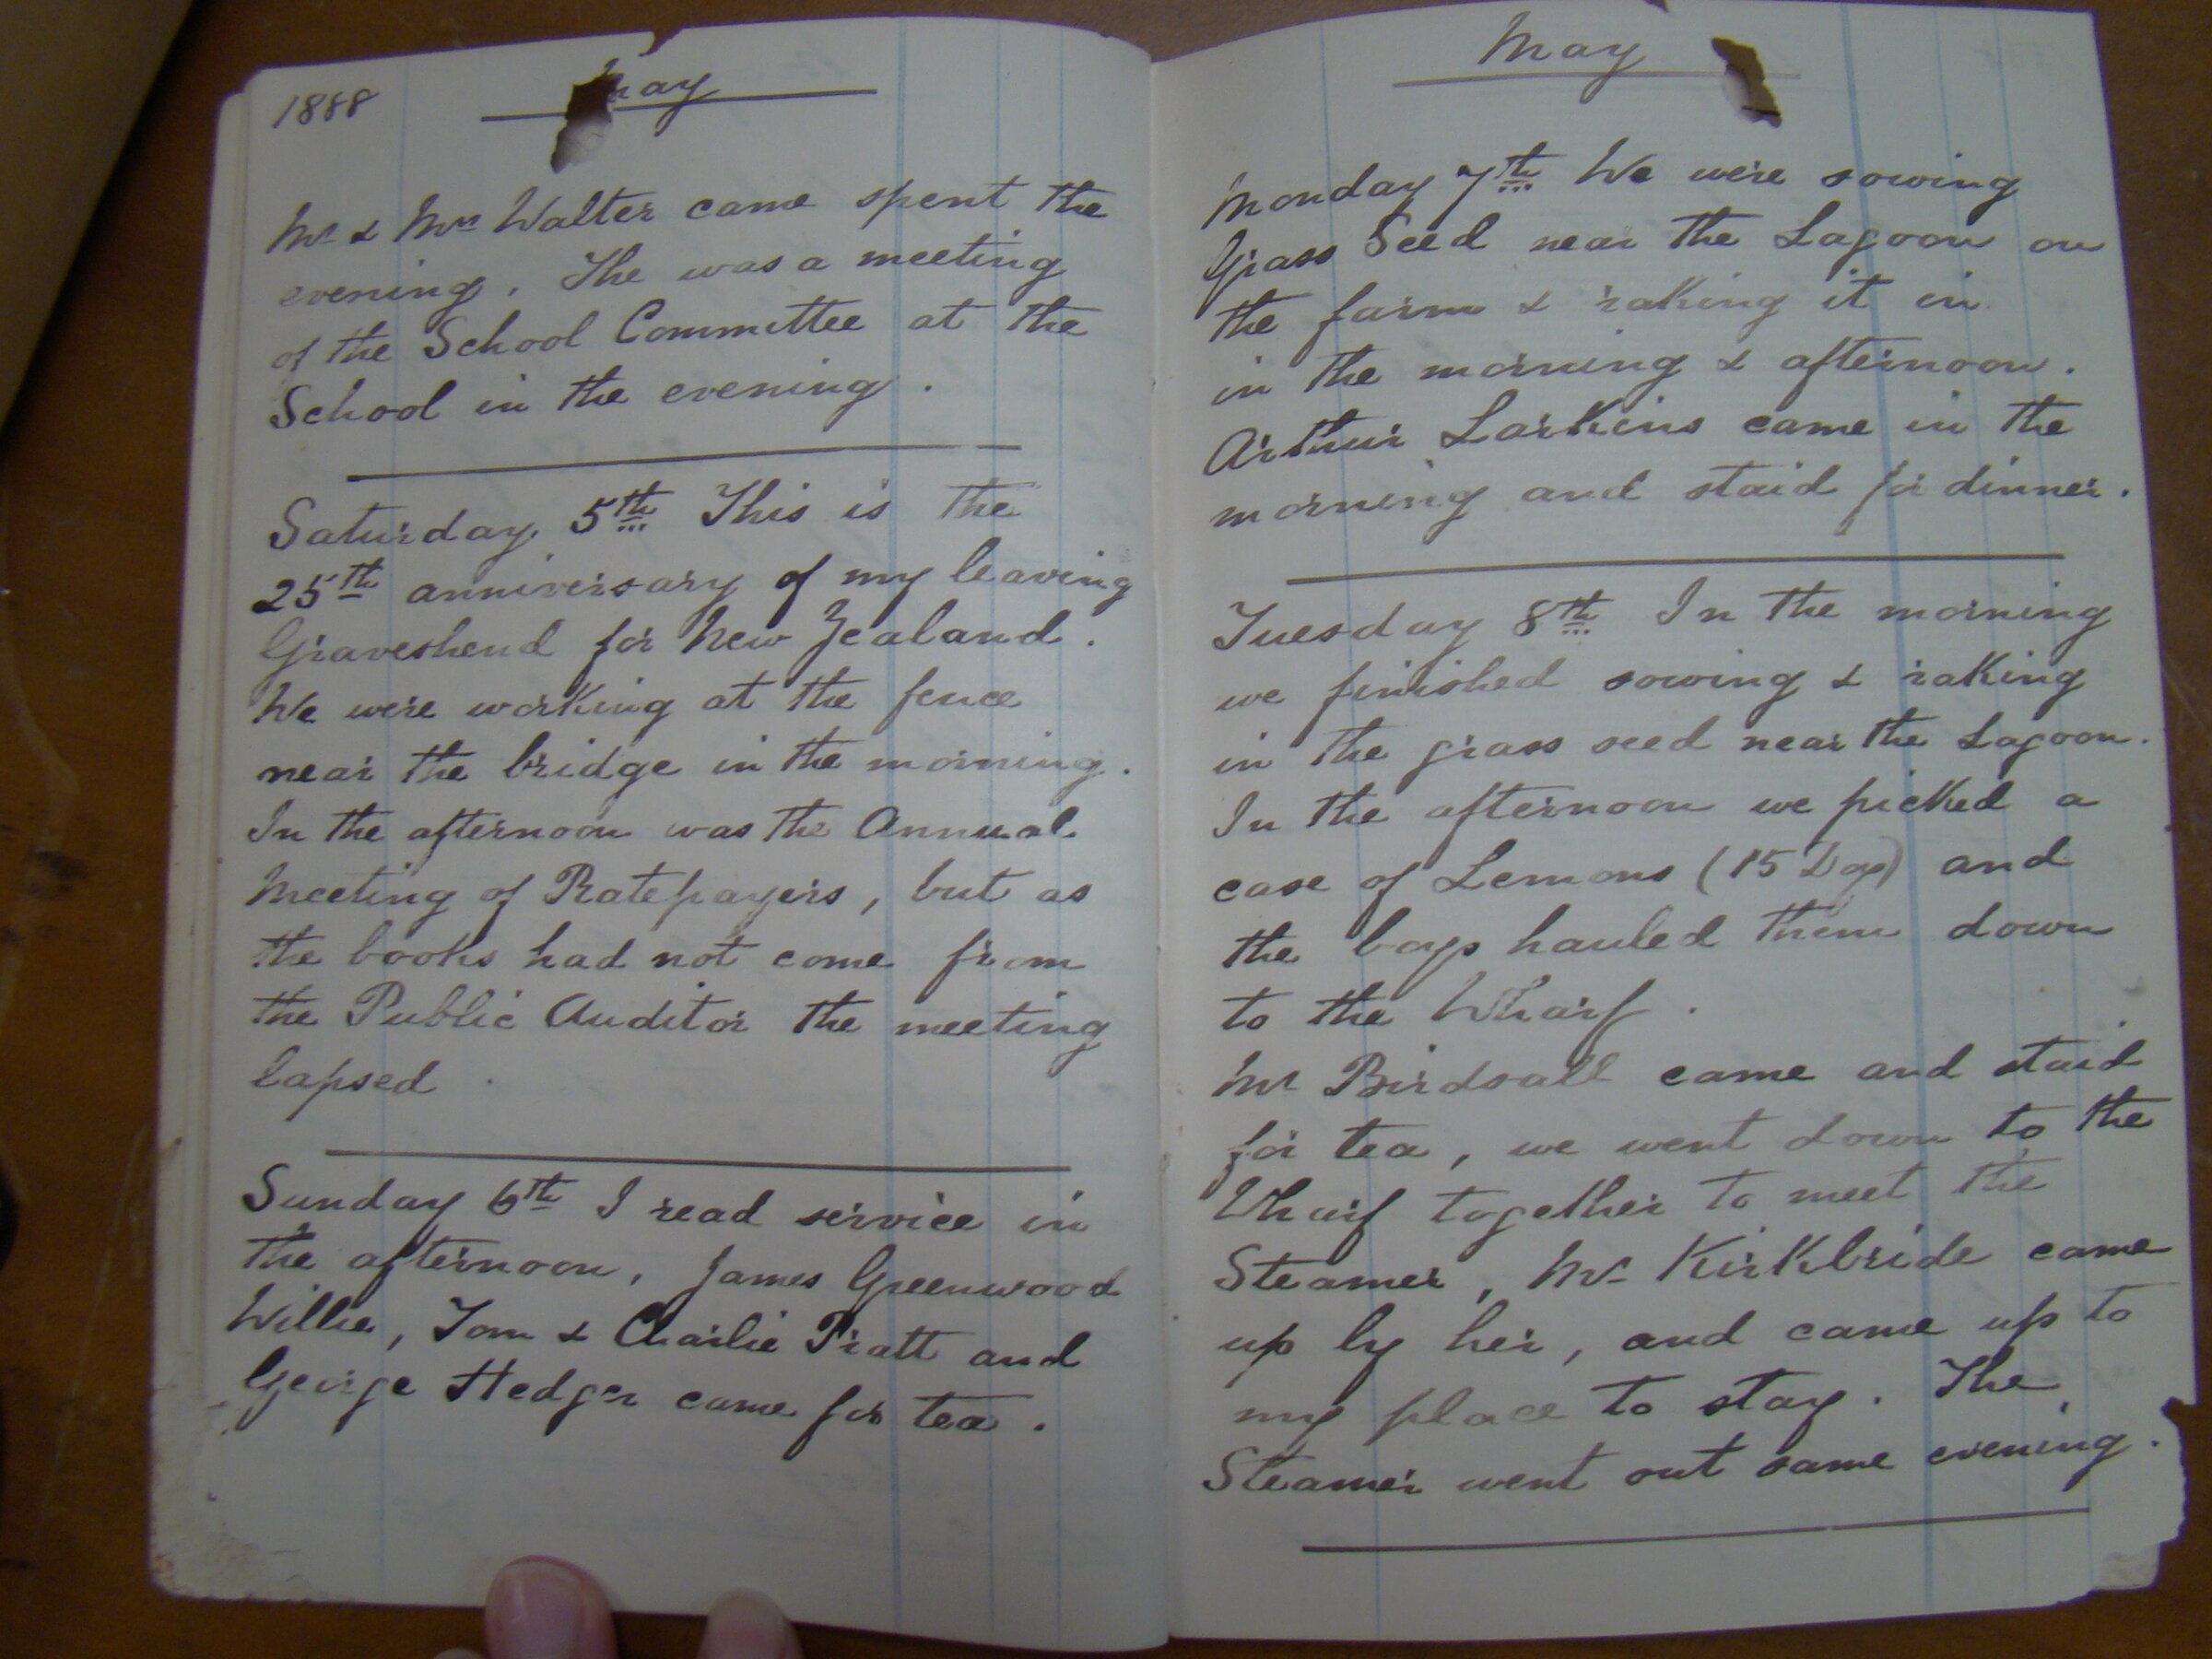 1888
May
Mr & Mrs Walter came spent the
evening. The was a meeting
of the School Committee at the
School in the evening.
Saturday 5th This is the
25th anniversary of my leaving
Graveshend for New Zealand.
We were working at the fence
near the bridge in the morning.
In the afternoon was the Annual
Meeting of Ratepayers, but as
the books had not come from
the Public Auditor the meeting
lapsed.
Sunday 6th I read service in
the afternoon, James Greenwood
Willie, Tom & Charlie Pratt and
George Hedger came for tea.
May
Monday 7th We were sowing
Grass Seed near the Lagoon on
the farm & raking it in
in the morning & afternoon.
Arthur Larkins came in the
morning and staid for dinner.
Tuesday 8th In the morning
we finished sowing & raking
in the grass seed near the Lagoon.
In the afternoon we picked a
case of Lemons (15 Dog) and
the boys hauled them down
to the Wharf.
Mr Birdsall came and staid
for tea, we went down to the
Wharf together to meet the
Steamer, Mr Kirkbride came
up by her, and came up to
my place to stay. The
Steamer went out same evening.